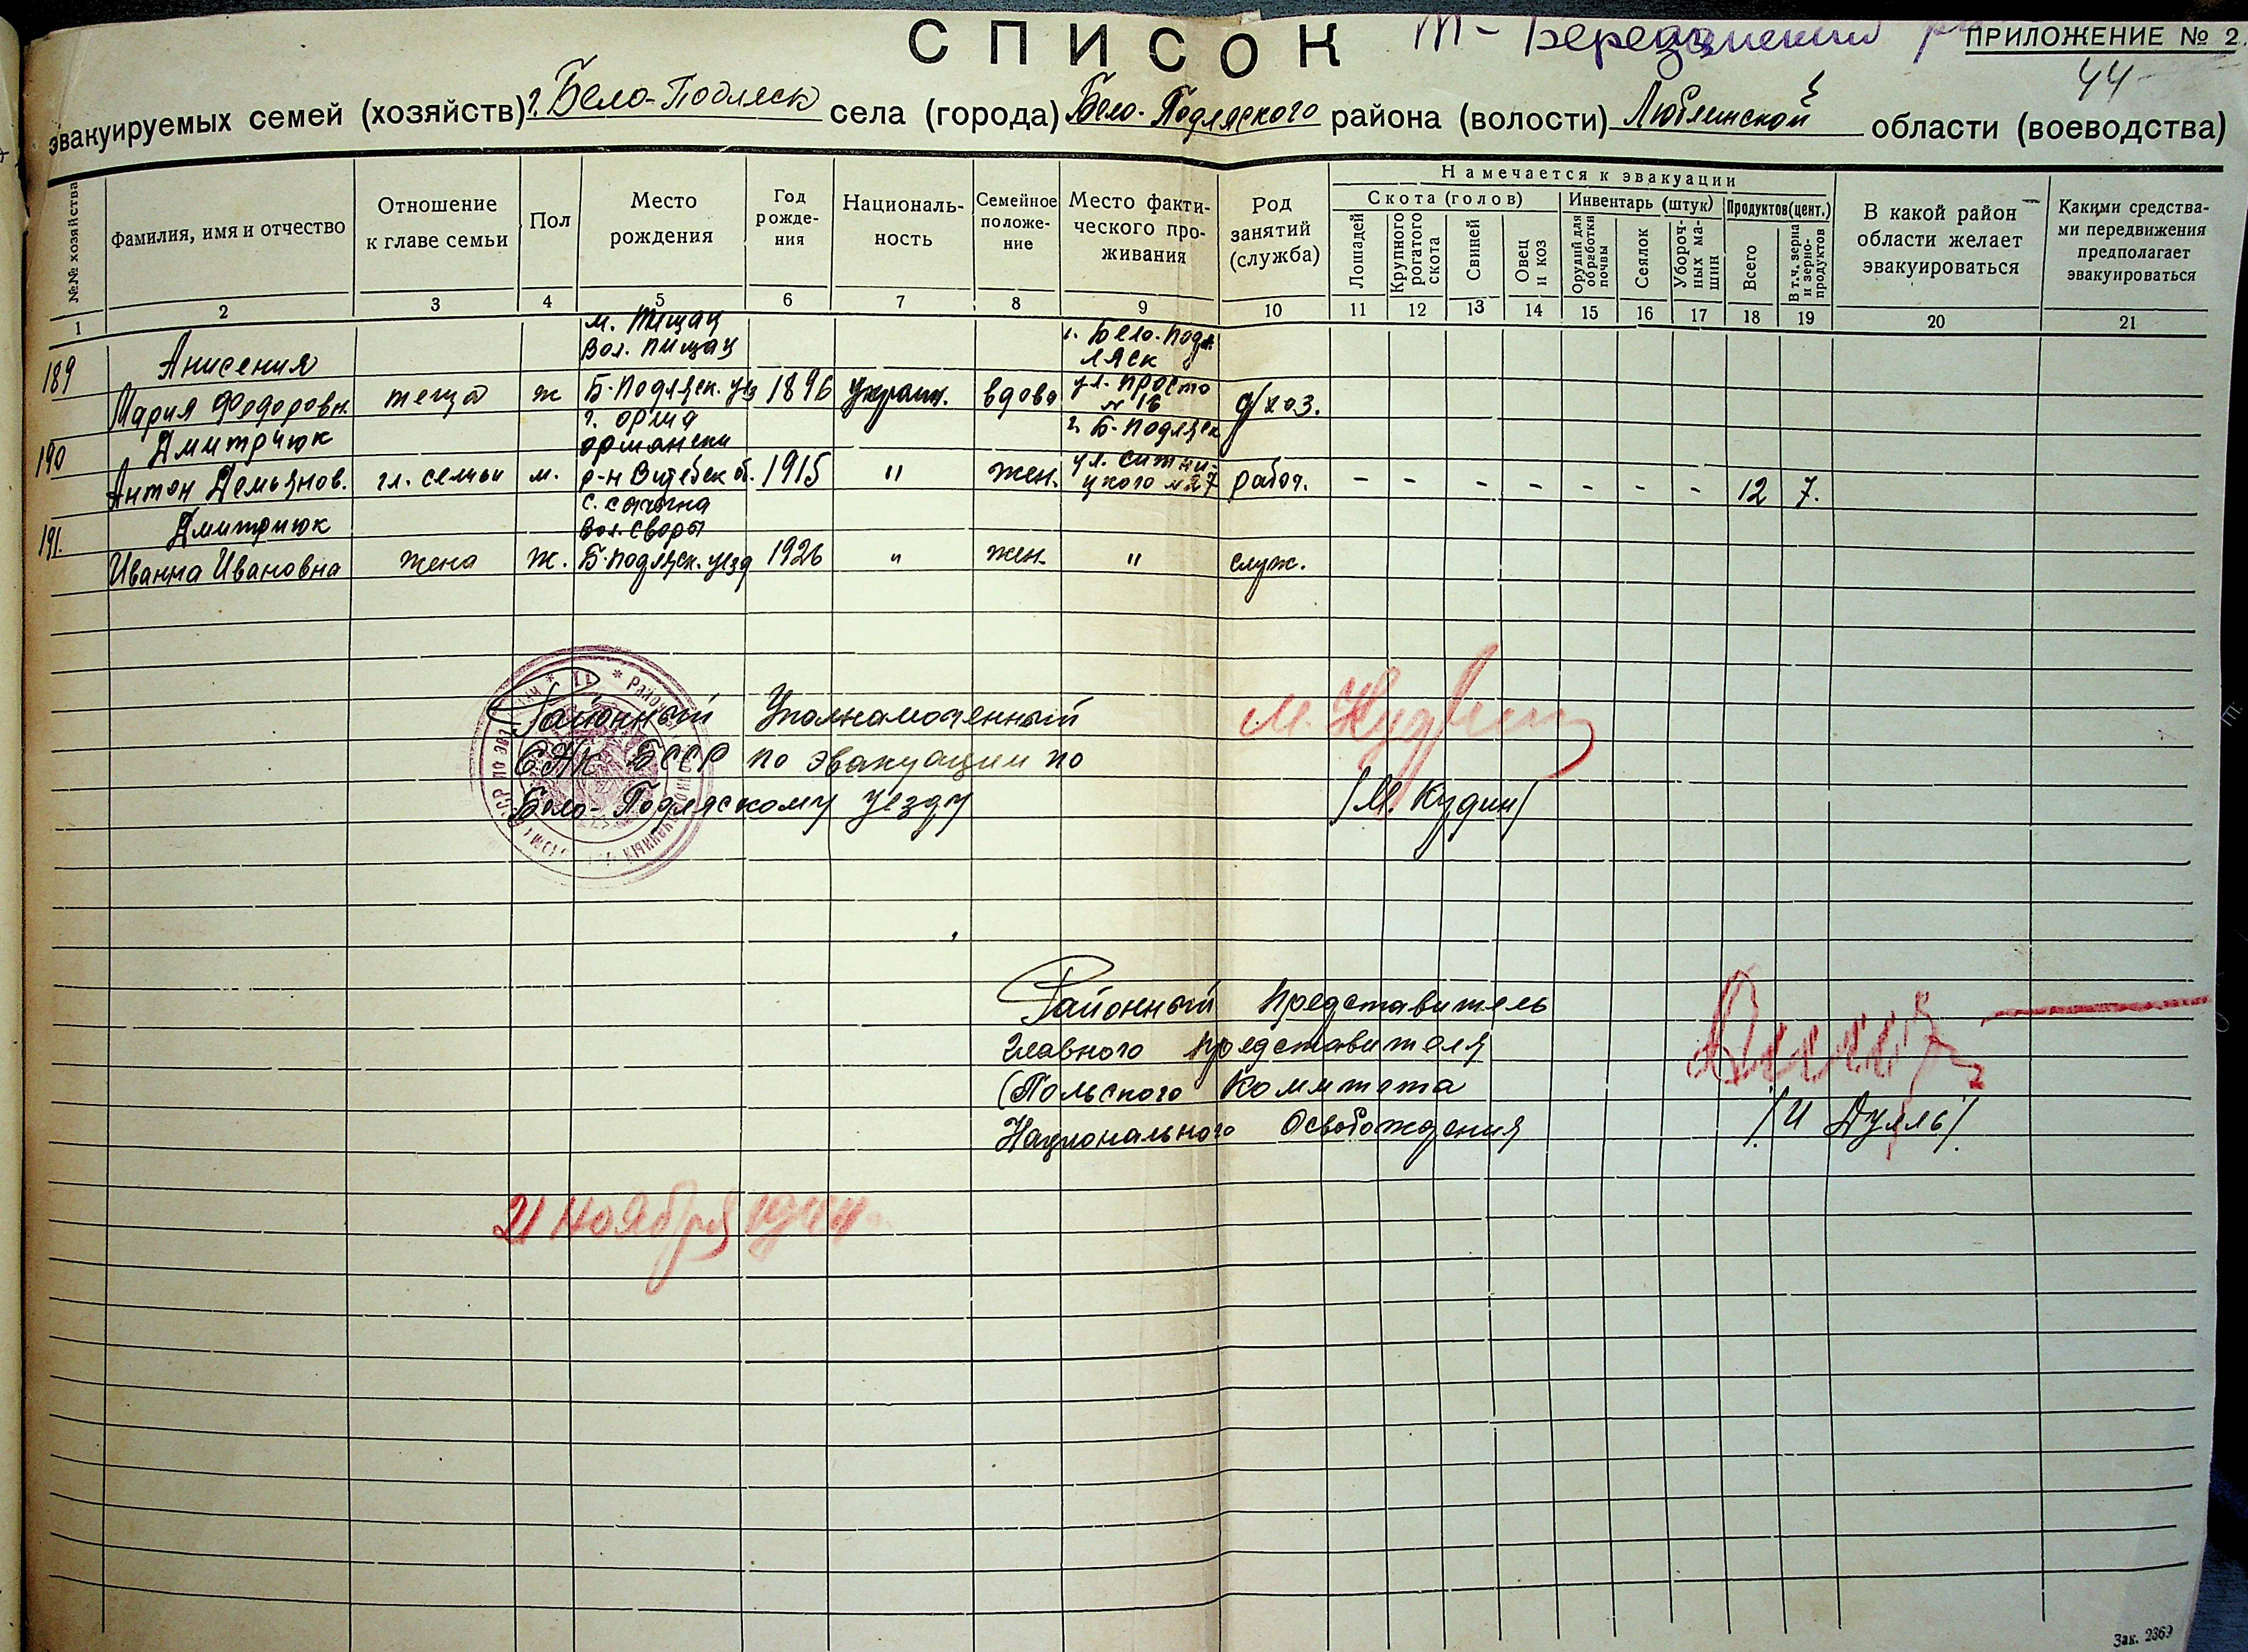 СПИСОК
Т-Березанский
ПРИЛОЖЕНИЕ № 2.
44
эвакуируемых семей (хозяйств) г. Бело-Подляск села (города) Бело-Подляского района (волости) Люблинской области (воеводства)
№№ хозяйства
Фамилия, имя и отчество
Отношение к главе семьи
Пол
Место рождения
Год рождения
Националь-
ность
Семейное положе-
ние
Место факти-
ческого про-
живания
Род занятий (служба)
Намечается к эвакуации
Скота (голов)
Инвентарь (штук)
Продуктов (цент.)
Лошадей
Крупного рогатого скота
Свиней
Овец и коз
Орудий для обработки почвы
Сеялок
Убороч-
ных ма-
шин
Всего
В т. ч. зерна и зерно-
продуктов
В какой район области желает эвакуироваться
Какими средства-
ми передвижения предполагает эвакуироваться
1 2 3 4 5 6 7 8 9 10 11 12 13 14 15 16 17 18 19 20 21
м. Пищац
вол. Пищац
г. Бело-Под
ляск
189 Анисения
Мария Федоровн. теща ж Б-Подляск. уез 1896 украин. вдова ул. Просто № 16 д/хоз.
г. Орша
оршански
г. Б-Подляск
190 Дмитрчюк
Антон Демьянов. гл. семьи м. р-н Витебск об. 1915 " жен. ул. Ситни-
цкого №27 рабоч. - - - - - - - 12 7.
с.
вол. Своры
191. Дмитриюк
Иванна Ивановна жена ж. Б-Подляск. уезд 1926 " жен. " служ.
Районный Уполнамоченный
СНК БССР по эвакуации по
Бело-Подляскому уезду
/М. Кудин/
Районный представитель
Главного представителя
Польского Комитета
Национального Освобождения
/И Дуль/
21 ноября 1944
Зак. 2369